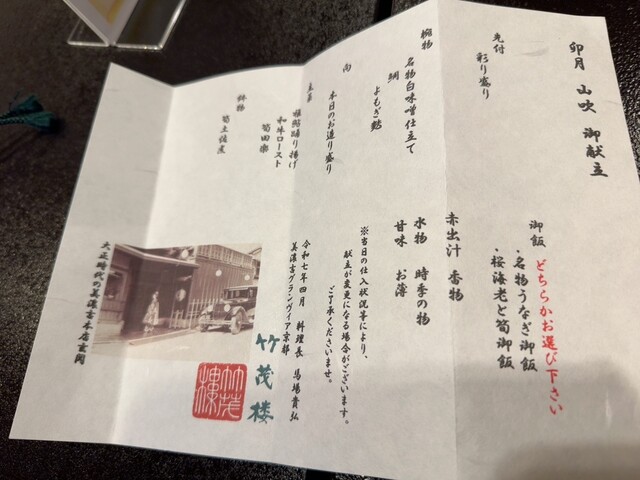 卯月 山吹 御献立
先付
彩り盛り
椀物
名物白味噌仕立て
鯛
よもぎ麩
向
本日のお造り盛り
主菜
稚鮎踊り揚げ
和牛ロースト
筍田楽
鉢物
筍土佐煮
御飯 どちらかお選び下さい
・名物うなぎ御飯
・桜海老と筍御飯
赤出汁 香物
水物 時季の物
甘味 お薄
※当日の仕入状況等により、
献立が変更になる場合がございます。
ご了承くださいませ。
令和七年四月 料理長 馬場貴弘
美濃吉グランヴィア京都
竹茂楼
竹茂楼
大正時代の美濃吉本店玄関